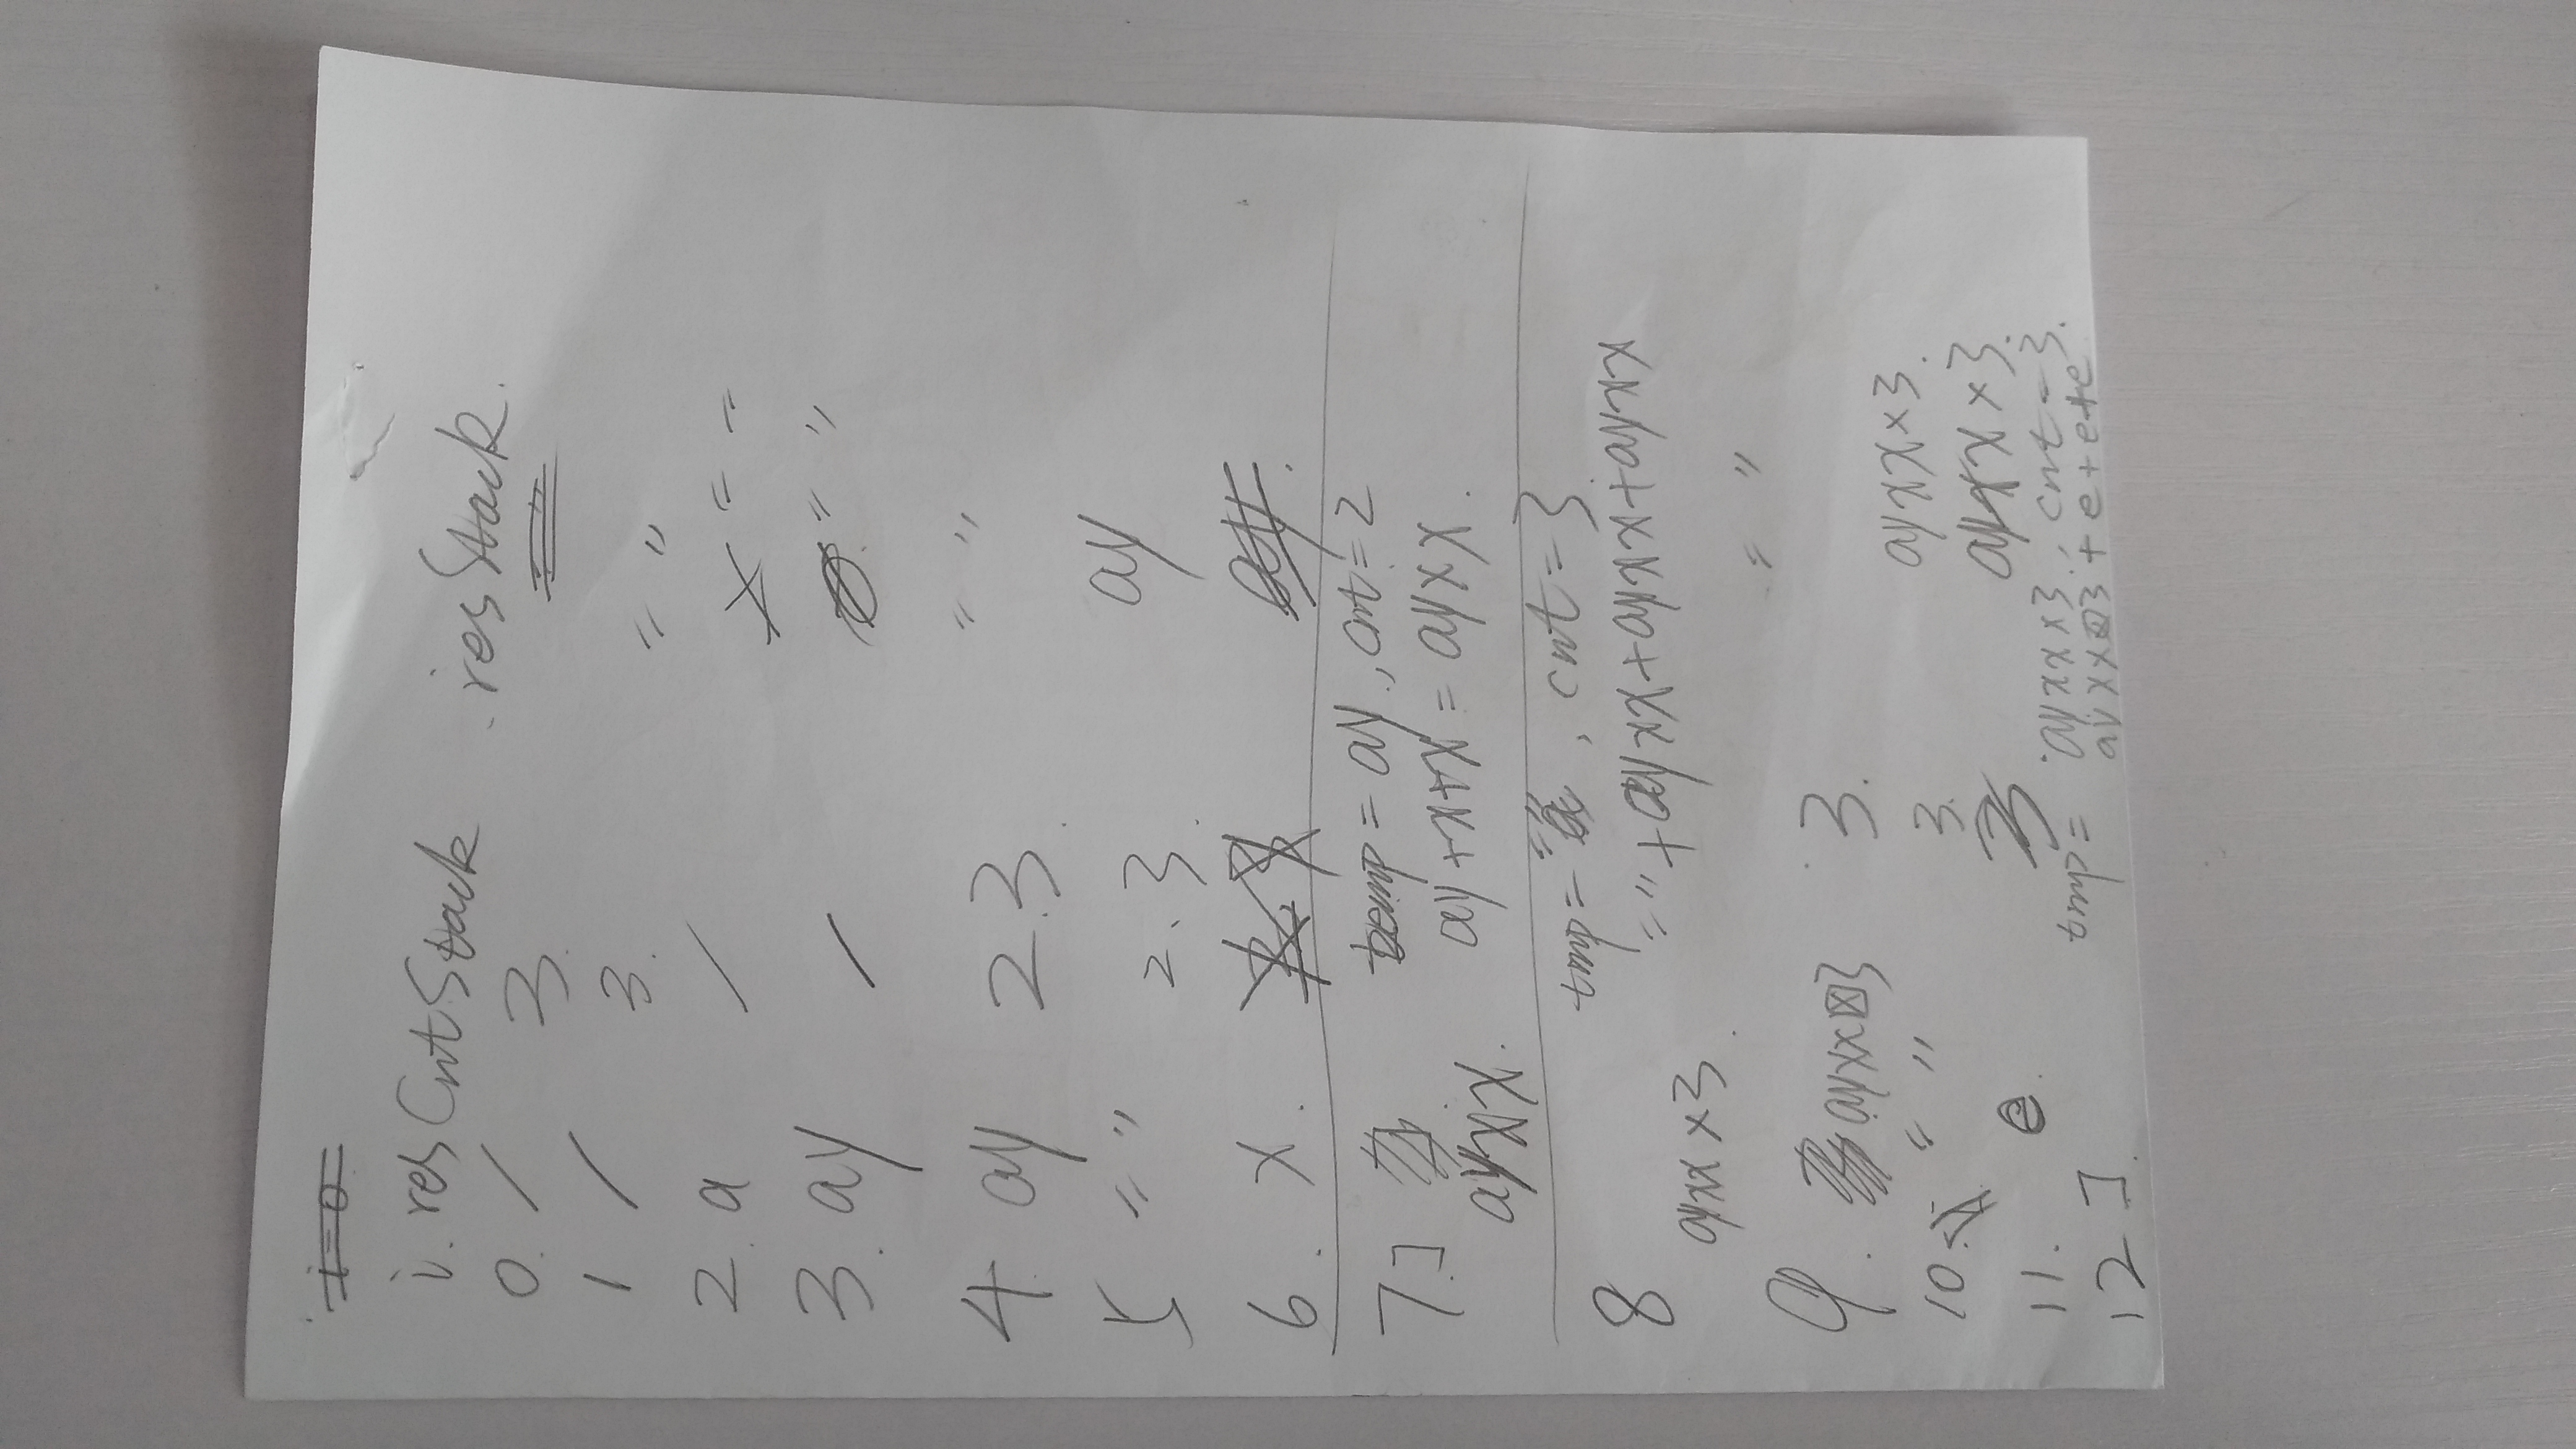 i. res CntStack . resStack.
0. / 3. " "
1 / 3. " "
2. a / " "
3. ay / " "
4 ay 2.3. " "
5 " " 2.3. ay
6. x.
7. ] = ay, cnt=2
ayxx. ay+x+x = ayxx.
tmp= " ", cnt=3
8 " "+ayxx+ayxx+ayxx
ayxx x3. " "
9. ayxx 3 3.
10. " " 3. ayxx x3.
11. e. ayxx x3.
12 ] tmp= ayxx x3; cnt=3.
ayxx 3+e+e+e.